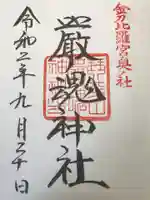 金刀比羅宮奥社
嚴魂神社
令和二年九月 日